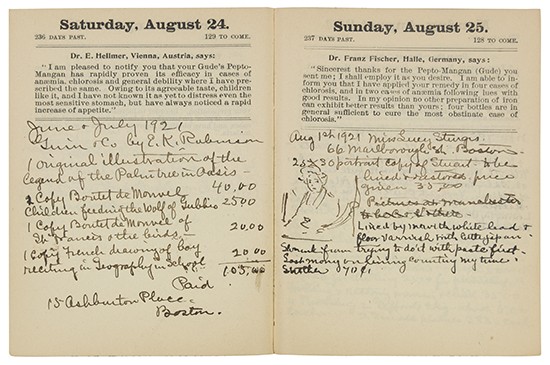 Saturday, August 24.
236 DAYS PAST. 129 TO COME.
Dr. E. Hellmer, Vienna, Austria, says:
"I am pleased to notify you that your Gude's Pepto-
Mangan has rapidly proven its efficacy in cases of
anæmia, chlorosis and general debility where I have pre-
scribed the same. Owing to its agreeable taste, children
like it, and I have not known it as yet to distress even the
most sensitive stomach, but have always noticed a rapid
increase of appetite."
June & July 1921
& Co by E. K. Robinson
1 Original illustration of the
Legend of the Palm tree in Oasis -
40,00
2 Copy Boutet de Monvel
Children feeding the Wolf of Gubbio 2500
1 Copy Boutet de Monvel of
St. Francis & the birds - 20.00
1 Copy French drawing of boy 20 00
reciting in Geography in School
105,00
Paid
15 Ashburton Place -
Boston.
Sunday, August 25.
237 DAYS PAST. 128 TO COME.
Dr. Franz Fischer, Halle, Germany, says:
"Sincerest thanks for the Pepto-Mangan (Gude) you
sent me; I shall employ it as you desire. I am able to in-
form you that I have applied your remedy in four cases of
chlorosis, and in two cases of anæmia following lues with
good results. In my opinion no other preparation of iron
can exhibit better results than yours; four bottles are in
general sufficient to cure the most obstinate case of
chlorosis."
Aug 1st 1921 Miss Lucy Sturgis
66 Marlborough St Boston -
25 x 30 portrait copy of Stuart to be
lined & restored. price
given 35,00
Pictures at Manchester
to be
Lined by me with white lead &
floor varnish with
Shrunk from trying to do it with paste first -
Lost money on lining counting my time